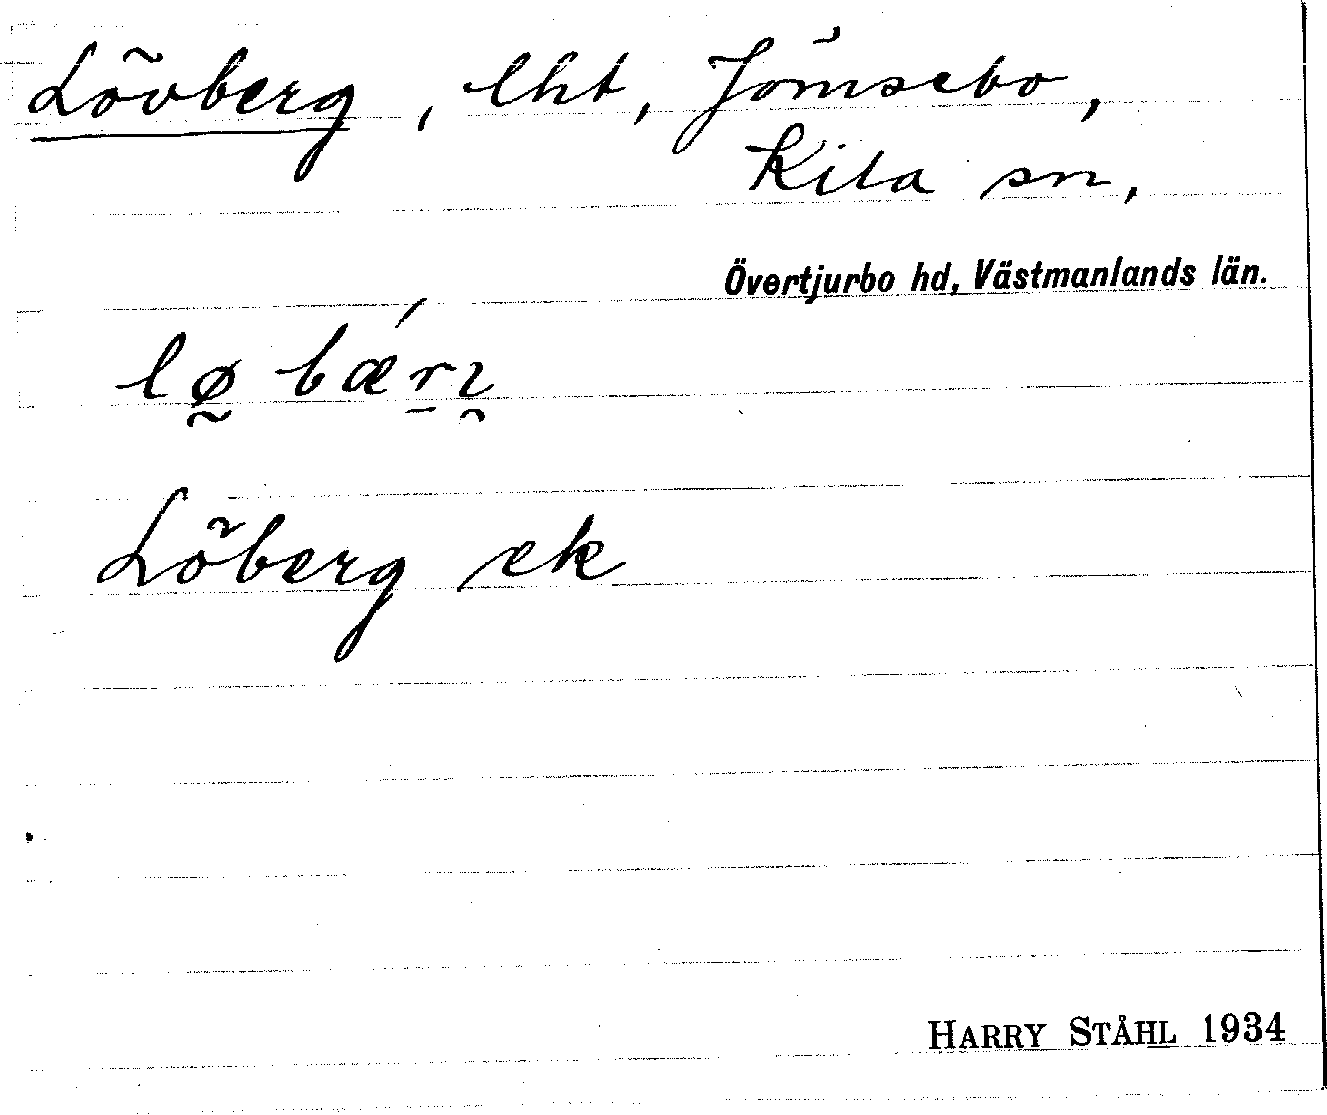 Lövberg, lht, Jömsebo,
Kila sn,
Övertjurbo hd, Västmanlands län.
Löberg ek
HARRY STÅHL 1934